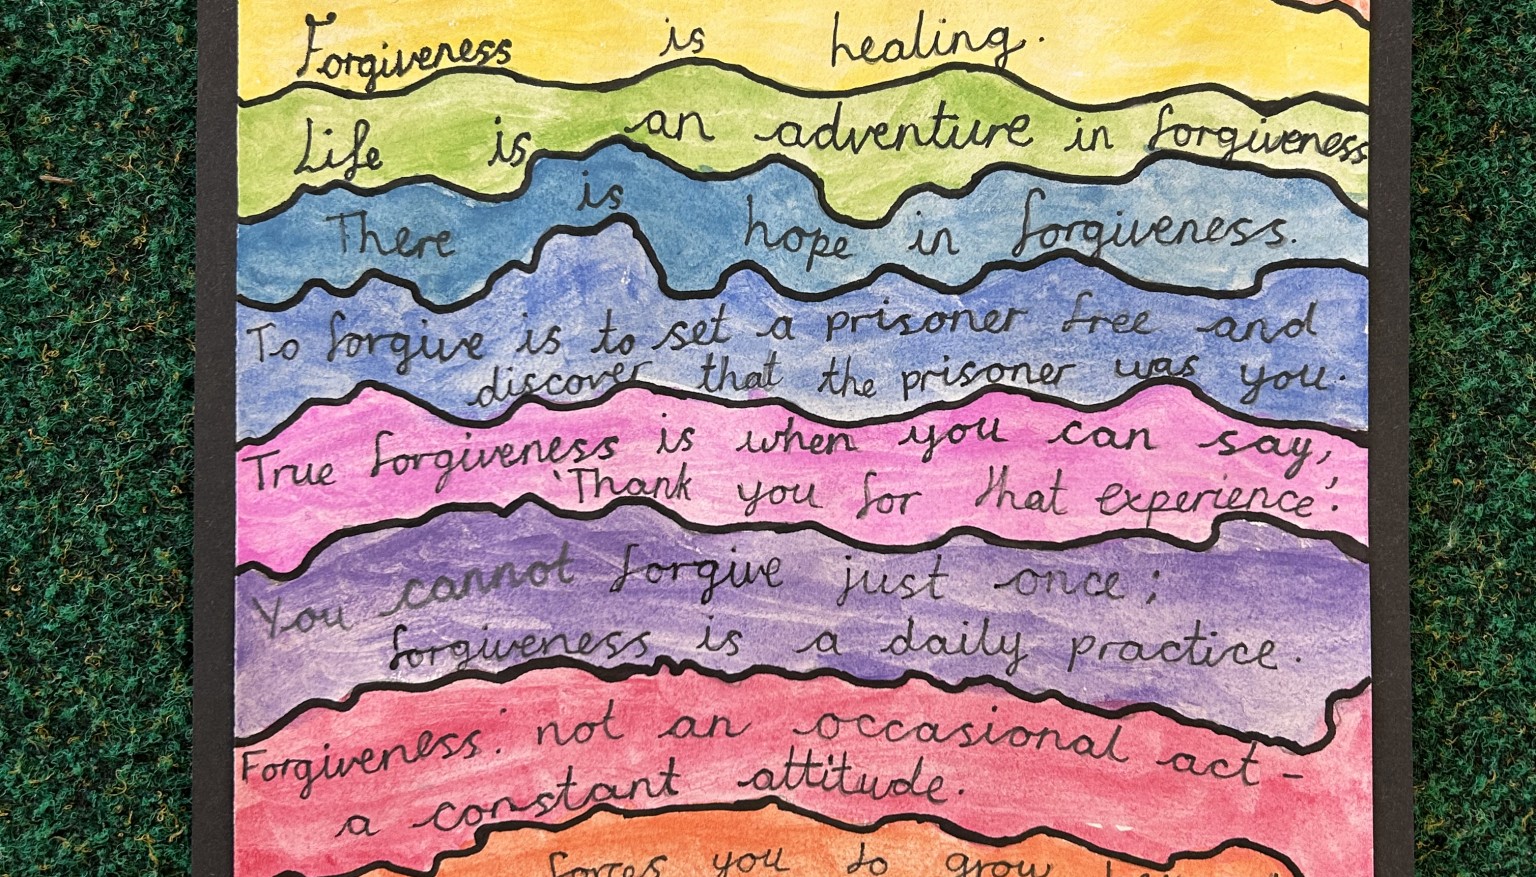 Forgiveness is healing.
Life is an adventure in forgiveness
There is hope in forgiveness.
To forgive is to set a prisoner free and
discover that the prisoner was you.
True forgiveness is when you can say,
'Thank you for that experience'.
You cannot forgive just once;
forgiveness is a daily practice.
Forgiveness: not an occasional act -
a constant attitude.
forces you to grow